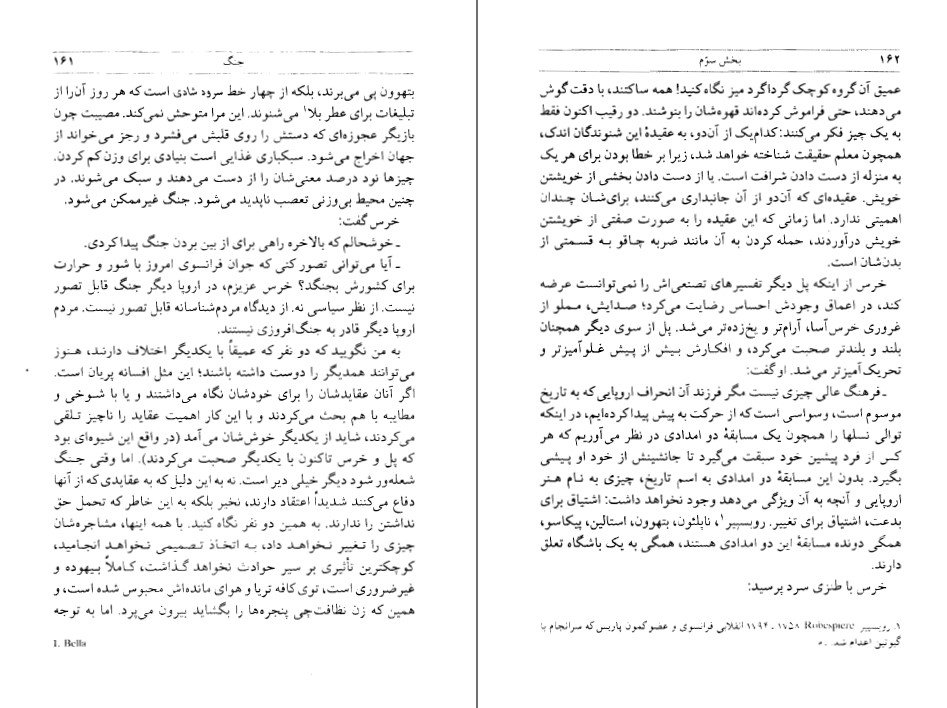 ۱۶۱
جنگ
بتهوون پی می‌برند، بلکه از چهار خط سرود شادی است که هر روز آن‌را از
تبلیغات برای عطر بلا۱ می‌شنوند. این مرا متوحش نمی‌کند. مصیبت چون
بازیگر عجوزه‌ای که دستش را روی قلبش می‌فشرد و رجز می‌خواند از
جهان اخراج می‌شود. سبکباری غذایی است بنیادی برای وزن کم کردن.
چیزها نود درصد معنی‌شان را از دست می‌دهند و سبک می‌شوند. در
چنین محیط بی‌وزنی تعصب ناپدید می‌شود. جنگ غیرممکن می‌شود.
خرس گفت:
ـ خوشحالم که بالاخره راهی برای از بین بردن جنگ پیدا کردی.
ـ آیا می‌توانی تصور کنی که جوان فرانسوی امروز با شور و حرارت
برای کشورش بجنگد؟ خرس عزیزم، در اروپا دیگر جنگ قابل تصور
نیست. از نظر سیاسی نه. از دیدگاه مردم‌شناسانه قابل تصور نیست. مردم
اروپا دیگر قادر به جنگ‌افروزی نیستند.
به من نگویید که دو نفر که عمیقاً با یکدیگر اختلاف دارند، هنوز
می‌توانند همدیگر را دوست داشته باشند؛ این مثل افسانه پریان است.
اگر آنان عقایدشان را برای خودشان نگاه می‌داشتند و یا با شوخی و
مطایبه با هم بحث می‌کردند و با این کار اهمیت عقاید را ناچیز تلقی
می‌کردند، شاید از یکدیگر خوش‌شان می‌آمد (در واقع این شیوه‌ای بود
که پل و خرس تاکنون با یکدیگر صحبت می‌کردند). اما وقتی جنگ
شعله‌ور شود دیگر خیلی دیر است. نه به این دلیل که به عقایدی که از آنها
دفاع می‌کنند شدیداً اعتقاد دارند، نخیر بلکه به این خاطر که تحمل حق
نداشتن را ندارند. به همین دو نفر نگاه کنید. با همه اینها، مشاجره‌شان
چیزی را تغییر نخواهد داد، به اتخاذ تصمیمی نخواهد انجامید،
کوچکترین تأثیری بر سیر حوادث نخواهد گذاشت، کاملاً بیهوده و
غیرضروری است، توی کافه تریا و هوای مانده‌اش محبوس شده است، و
همین که زن نظافت‌چی پنجره‌ها را بگشاید بیرون می‌پرد. اما به توجه
1. Bella
۱۶۲
بخش سوّم
عمیق آن گروه کوچک گرداگرد میز نگاه کنید! همه ساکتند، با دقت گوش
می‌دهند، حتی فراموش کرده‌اند قهوه‌شان را بنوشند. دو رقیب اکنون فقط
به یک چیز فکر می‌کنند: کدام‌یک از آن‌دو، به عقیدهٔ این شنوندگان اندک،
همچون معلم حقیقت شناخته خواهد شد، زیرا بر خطا بودن برای هر یک
به منزله از دست دادن شرافت است. یا از دست دادن بخشی از خویشتن
خویش. عقیده‌ای که آن‌دو از آن جانبداری می‌کنند، برای‌شان چندان
اهمیتی ندارد. اما زمانی که این عقیده را به صورت صفتی از خویشتن
خویش درآوردند، حمله کردن به آن مانند ضربه چاقو به قسمتی از
بدن‌شان است.
خرس از اینکه پل دیگر تفسیرهای تصنعی‌اش را نمی‌توانست عرضه
کند، در اعماق وجودش احساس رضایت می‌کرد؛ صدایش، مملو از
غروری خرس‌آسا، آرام‌تر و یخ‌زده‌تر می‌شد. پل از سوی دیگر همچنان
بلند و بلندتر صحبت می‌کرد، و افکارش بیش از پیش غلوآمیزتر و
تحریک‌آمیزتر می‌شد. او گفت:
ـ فرهنگ عالی چیزی نیست مگر فرزند آن انحراف اروپایی که به تاریخ
موسوم است، وسواسی است که از حرکت به پیش پیدا کرده‌ایم، در اینکه
توالی نسلها را همچون یک مسابقهٔ دو امدادی در نظر می‌آوریم که هر
کس از فرد پیشین خود سبقت می‌گیرد تا جانشینش از خود او پیشی
بگیرد. بدون این مسابقهٔ دو امدادی به اسم تاریخ، چیزی به نام هنر
اروپایی و آنچه به آن ویژگی می‌دهد وجود نخواهد داشت: اشتیاق برای
بدعت، اشتیاق برای تغییر. روبسپیر۱، ناپلئون، بتهوون، استالین، پیکاسو،
همگی دونده مسابقهٔ این دو امدادی هستند، همگی به یک باشگاه تعلق
دارند.
خرس با طنزی سرد پرسید:
۱. روبسپیر Robespiere ۱۷۵۸ ـ ۱۷۹۴ انقلابی فرانسوی و عضو کمون پاریس که سرانجام با
گیوتین اعدام شد. ـ م